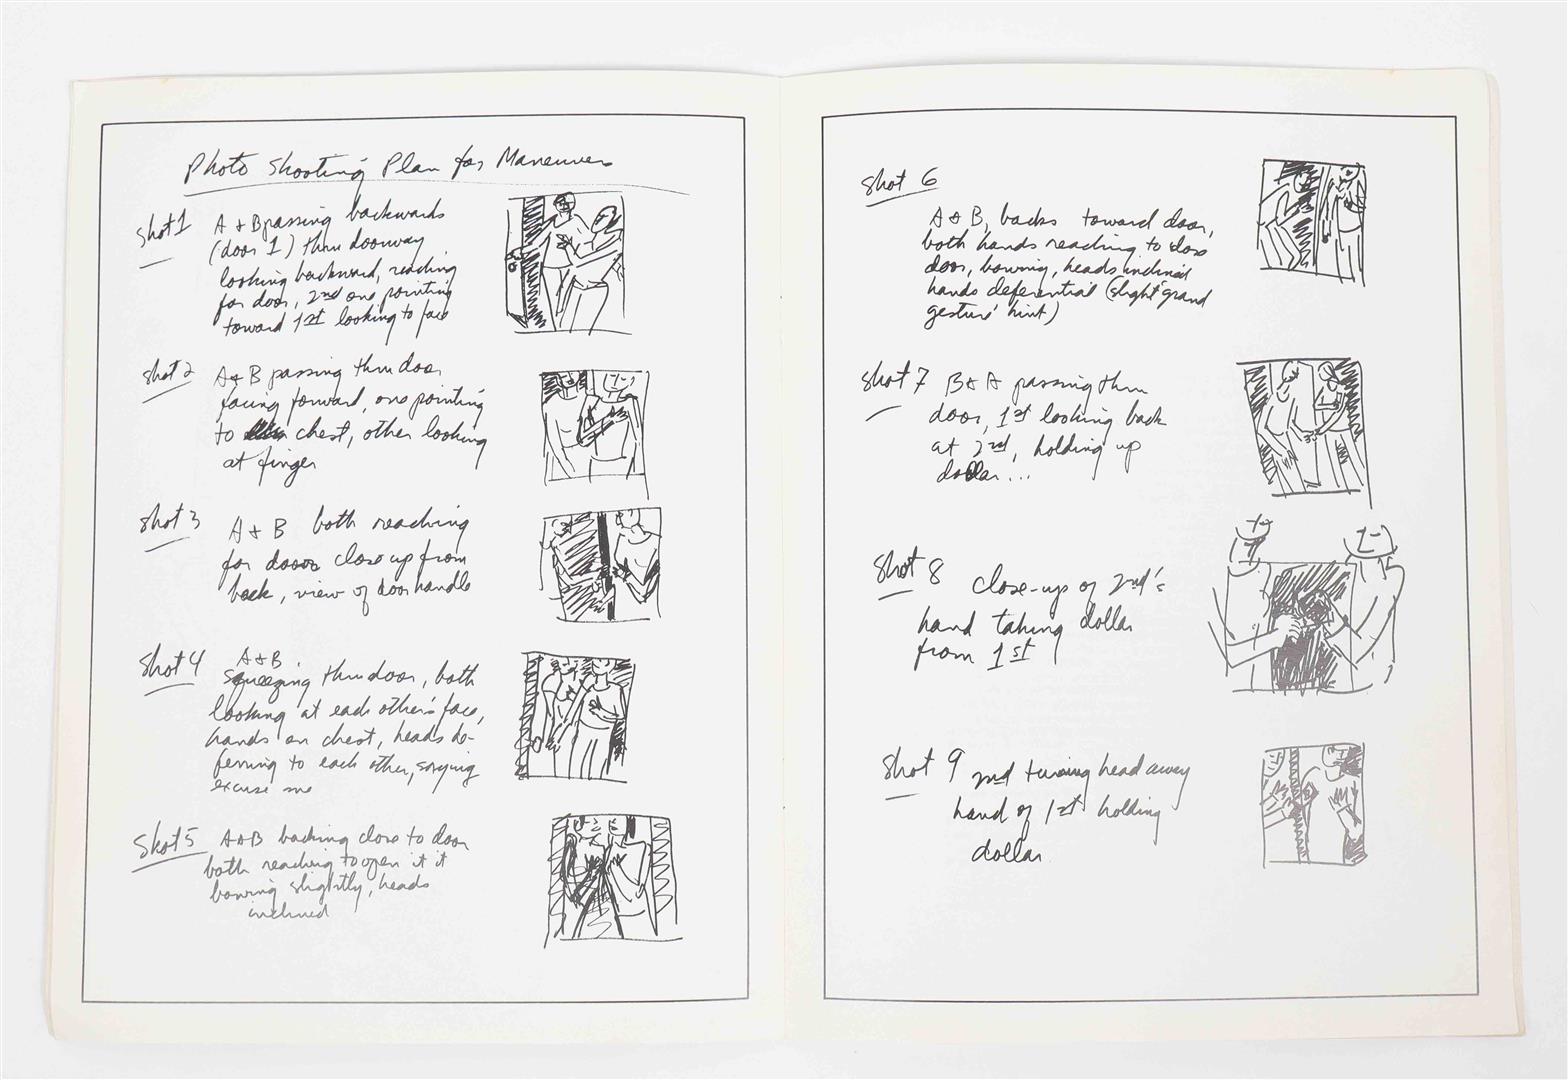 Photo Shooting Plan for Maneuvers
Shot 1
A & B passing backwards
(door 1) thru doorway
looking backward, reaching
for door, 2nd one pointing
toward 1st looking to face
Shot 2
A & B passing thru door
facing forward, one pointing
to chest, other looking
at finger
Shot 3
A & B both reaching
for door close up from
back, view of door handle
Shot 4
A & B
squeezing thru door, both
looking at each other's face,
hands on chest, heads de-
ferring to each other, saying
excuse me
Shot 5
A & B backing close to door
both reaching to open it it
bowing slightly, heads
inclined
Shot 6
A & B, backs toward door,
both hands reaching to close
door, bowing, heads inclined
hands deferential (slight 'grand
gesture' hint)
Shot 7
B & A passing thru
door, 1st looking back
at 2nd, holding up
dollar...
Shot 8
close-up of 2nd's
hand taking dollar
from 1st
Shot 9
2nd turning head away
hand of 1st holding
dollar